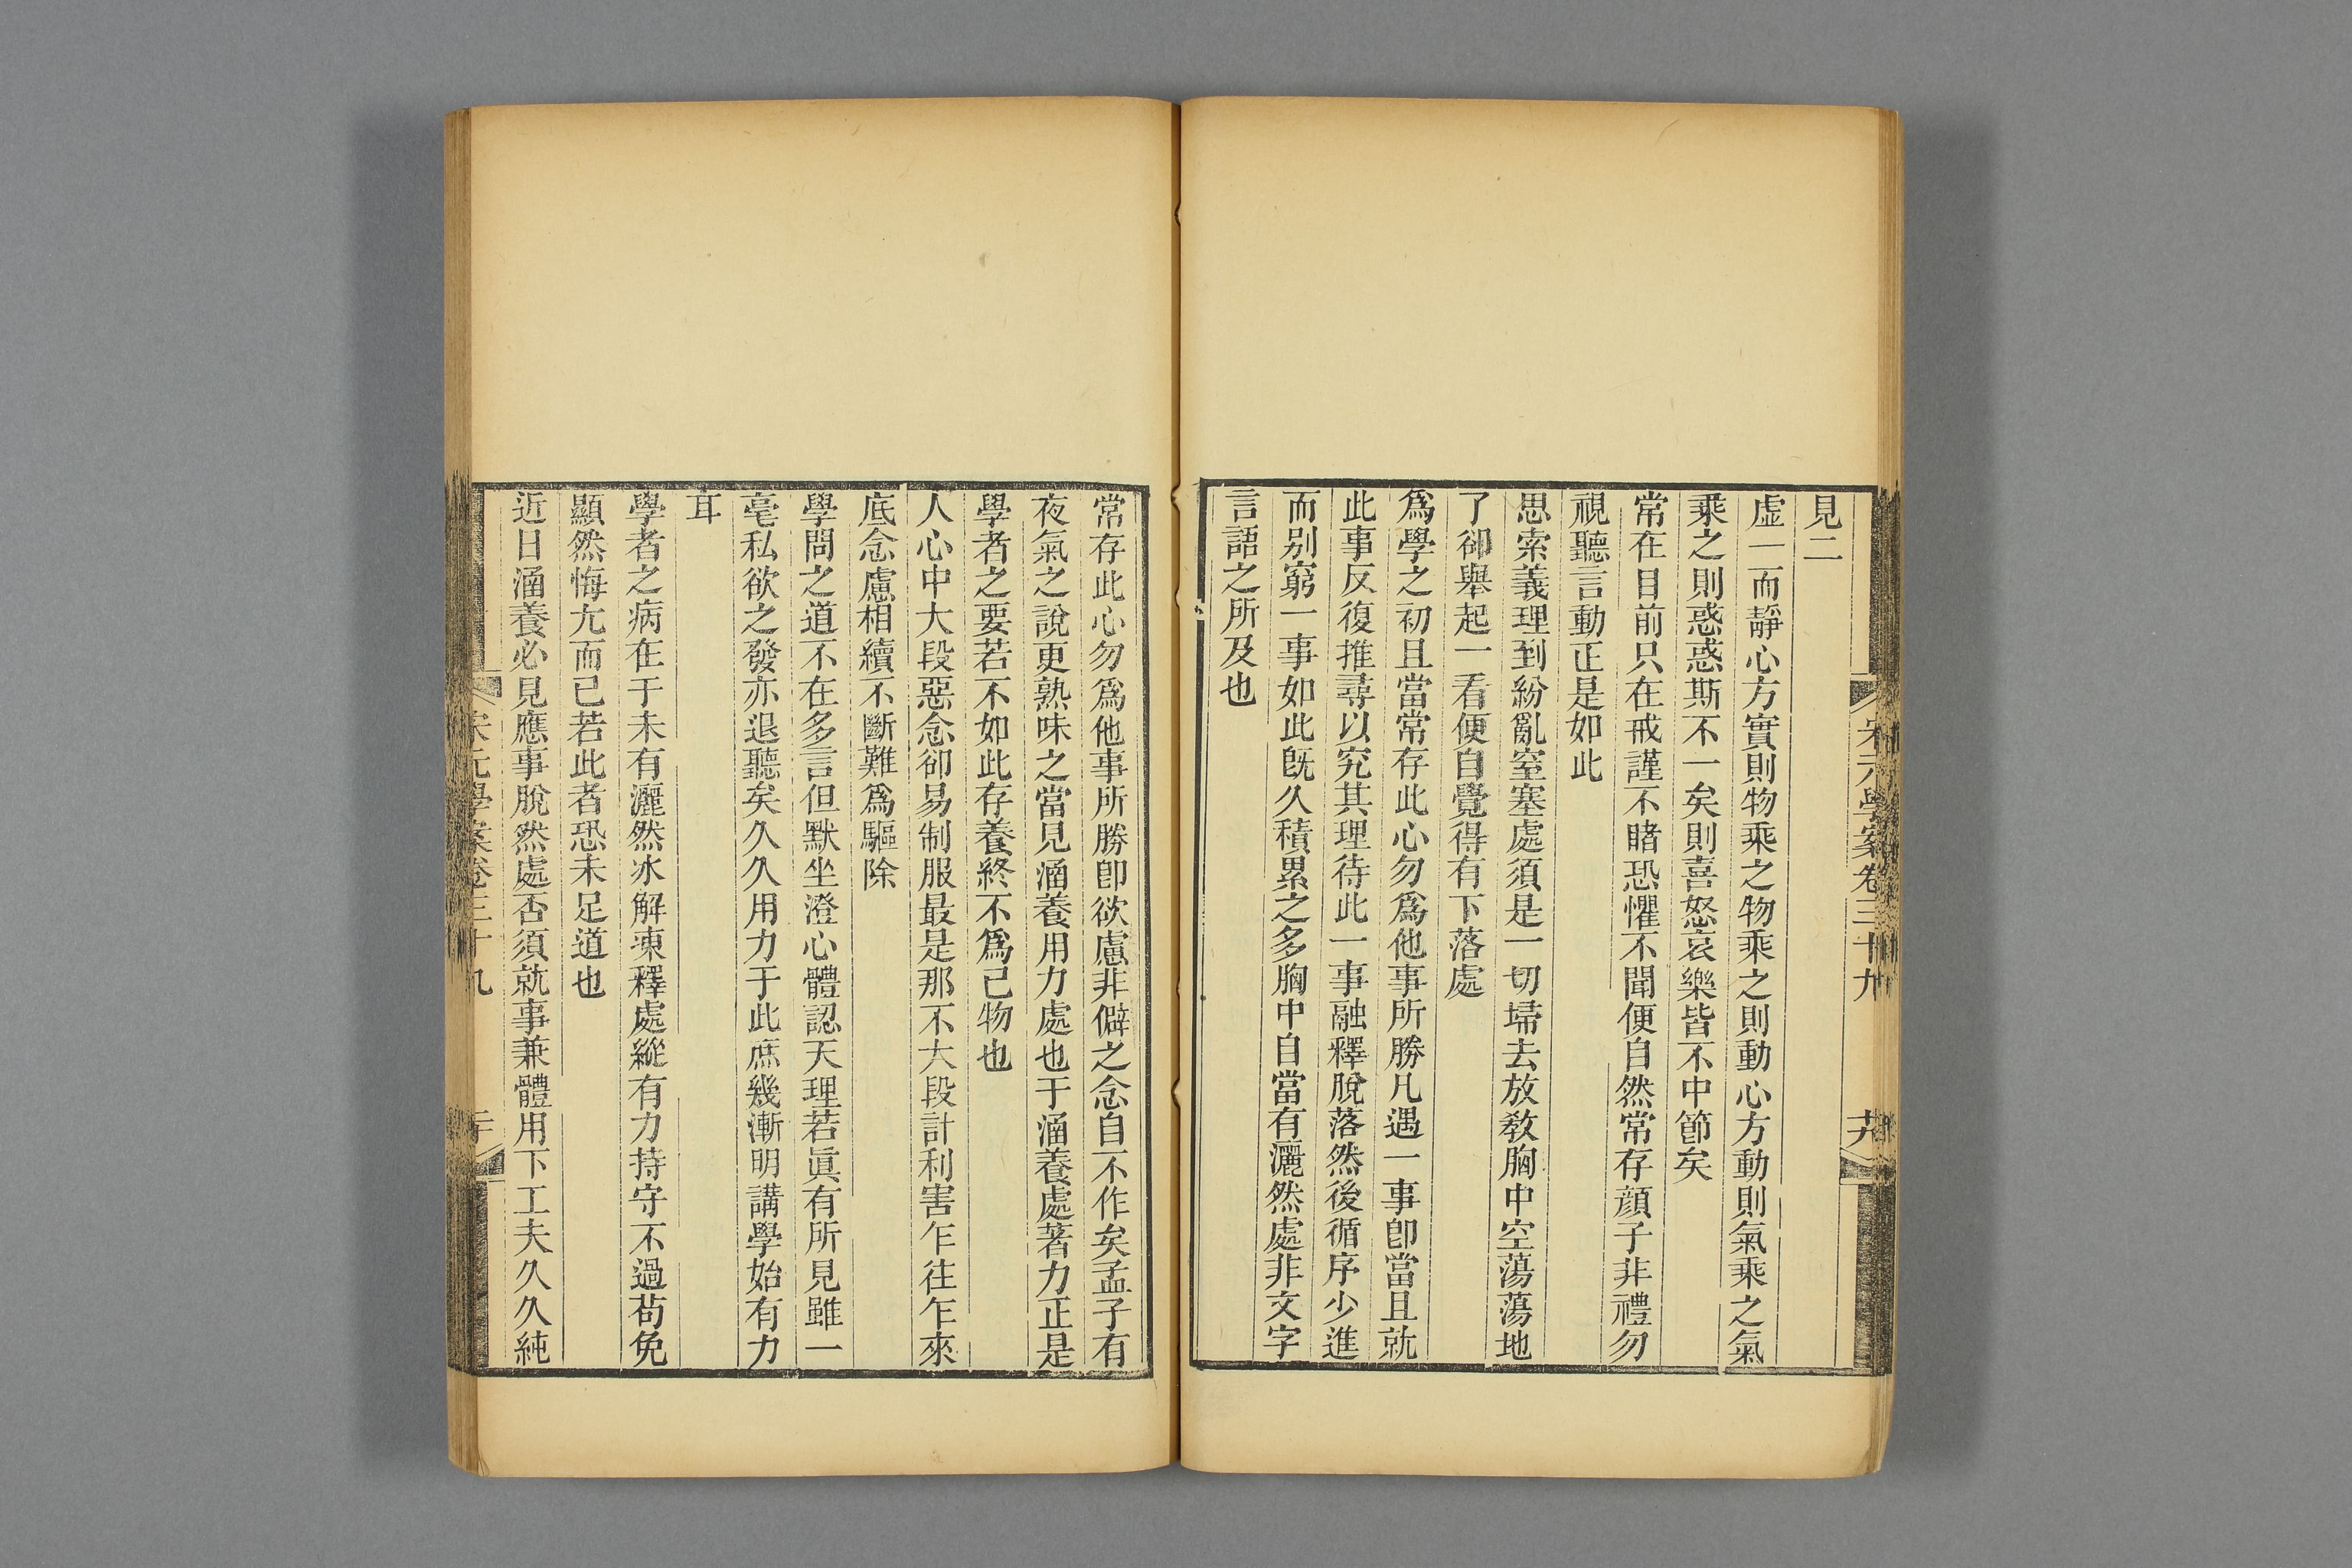 宋元學案卷三十九
見二
虛一而靜心方實則物乘之物乘之則動心方動則氣乘之氣
乘之則惑惑斯不一矣則喜怒哀樂皆不中節矣
常在目前只在戒謹不睹恐懼不聞便自然常存顏子非禮勿
視聽言動正是如此
思索義理到紛亂窒塞處須是一切埽去放敎胸中空蕩蕩地
了卻舉起一看便自覺得有下落處
爲學之初且當常存此心勿爲他事所勝凡遇一事卽當且就
此事反復推尋以究其理待此一事融釋脫落然後循序少進
而別窮一事如此旣久積累之多胸中自當有灑然處非文字
言語之所及也
常存此心勿爲他事所勝卽欲慮非僻之念自不作矣孟子有
夜氣之說更熟味之當見涵養用力處也于涵養處著力正是
學者之要若不如此存養終不爲己物也
人心中大段惡念卻易制服最是那不大段計利害乍往乍來
底念慮相續不斷難爲驅除
學問之道不在多言但默坐澄心體認天理若眞有所見雖一
毫私欲之發亦退聽矣久久用力于此庶幾漸明講學始有力
耳
學者之病在于未有灑然冰解凍釋處縱有力持守不過苟免
顯然悔尤而已若此者恐未足道也
近日涵養必見應事脫然處否須就事兼體用下工夫久久純
宋元學案卷三十九